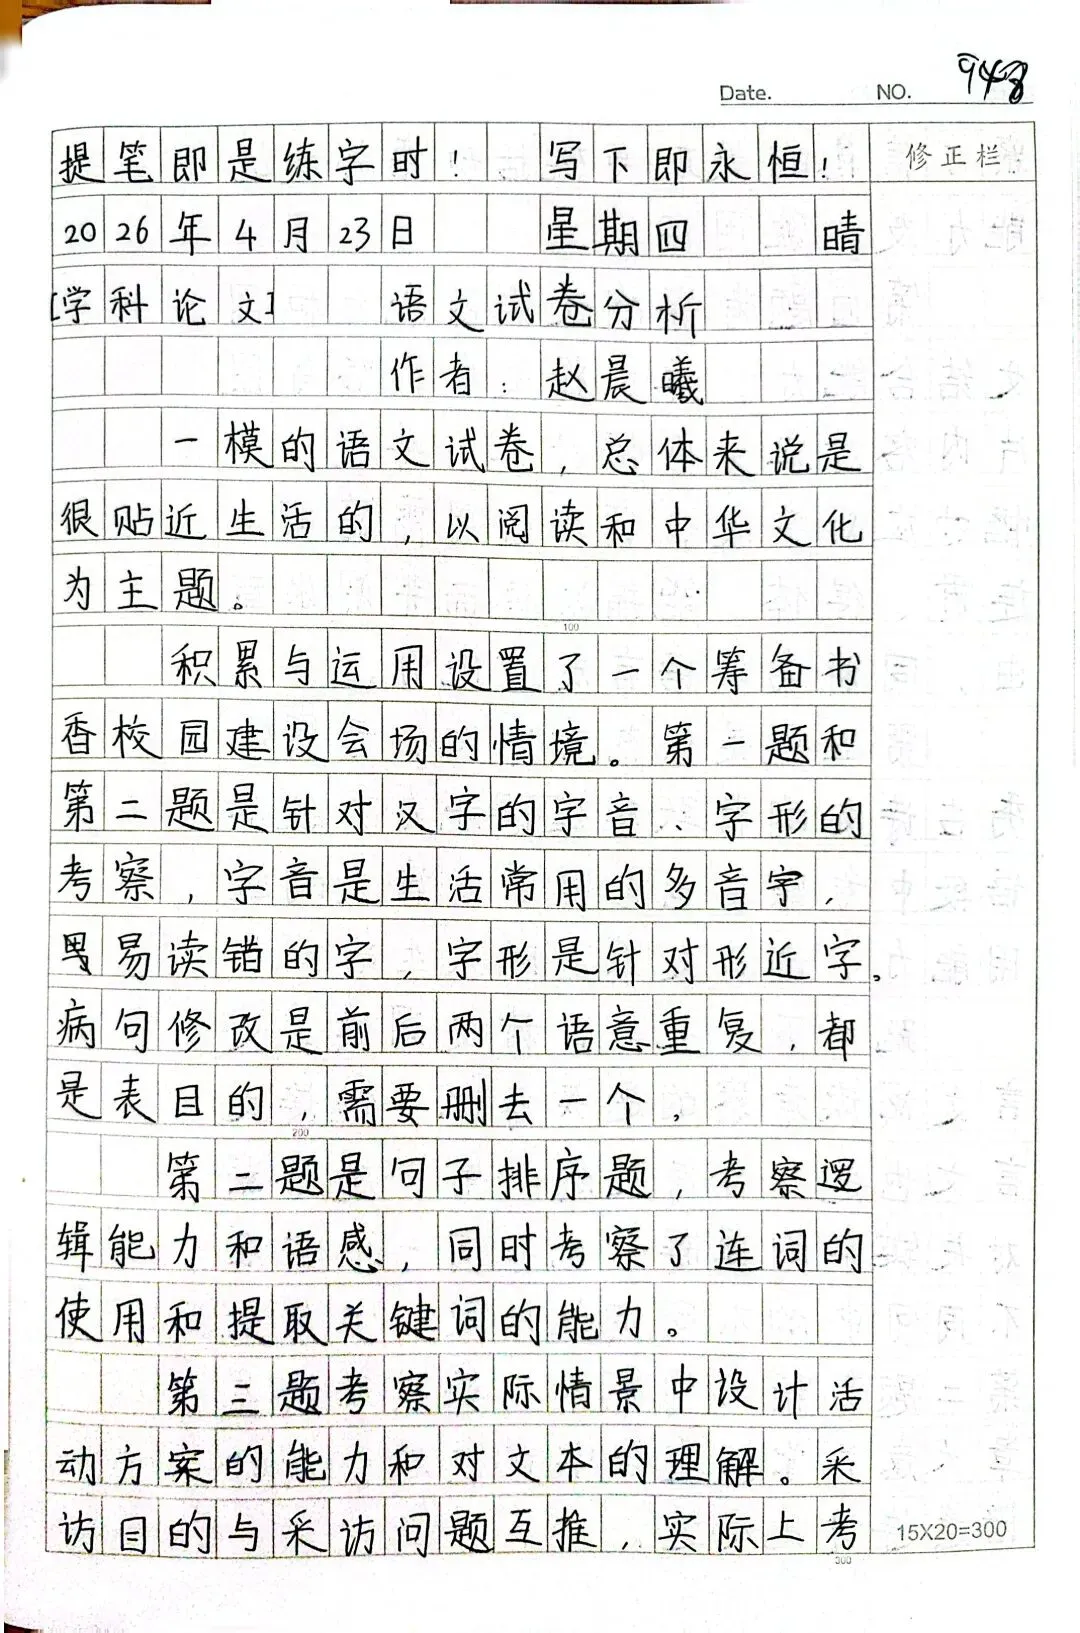 Date. NO. 948
提笔即是练字时! 写下即永恒! 修正栏
2026年4月23日 星期四 晴
[学科论文] 语文试卷分析
作者:赵晨曦
一模的语文试卷,总体来说是
很贴近生活的,以阅读和中华文化
为主题。
100
积累与运用设置了一个筹备书
香校园建设会场的情境。第一题和
第二题是针对汉字的字音、字形的
考察,字音是生活常用的多音字,
易读错的字,字形是针对形近字。
病句修改是前后两个语意重复,都
是表目的,需要删去一个,
200
第二题是句子排序题,考察逻
辑能力和语感,同时考察了连词的
使用和提取关键词的能力。
第三题考察实际情景中设计活
动方案的能力和对文本的理解。采
访目的与采访问题互推,实际上考
15X20=300
300